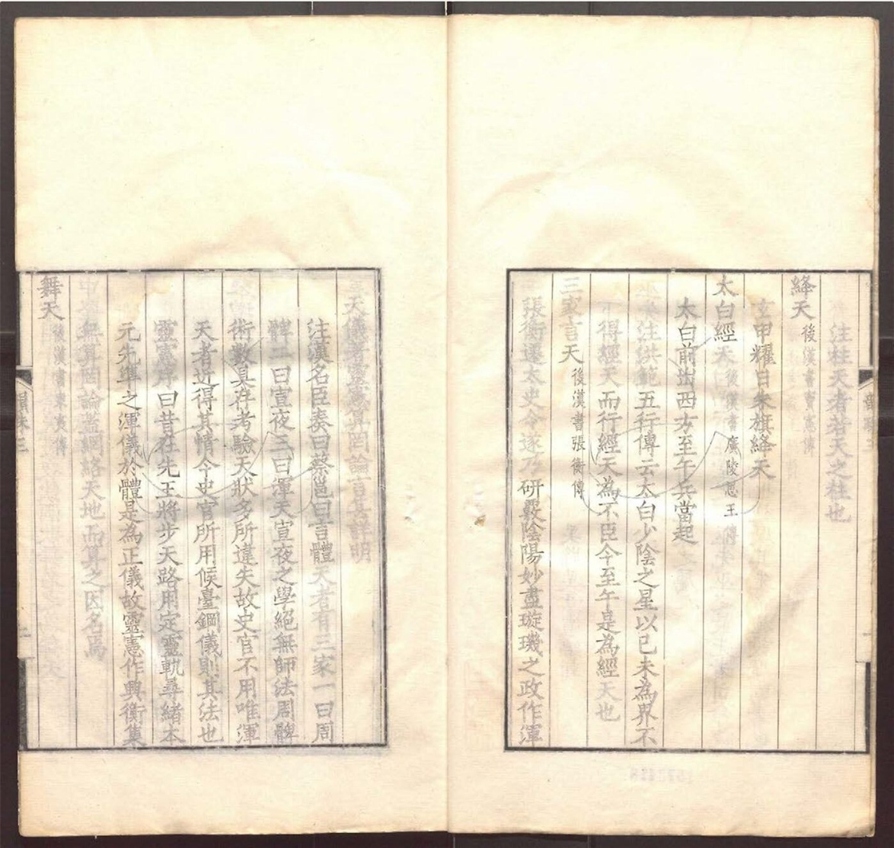 注柱天者若天之柱也
絳天後漢書竇憲傳
玄甲耀日朱旗絳天
太白經天後漢書廣陵思王傳
太白前出西方至午兵當起
注洪範五行傳云太白少陰之星以己未為界不
得經天而行經天為不臣今至午是為經天也
三家言天後漢書張衡傳
張衡遷太史令遂乃研覈陰陽妙盡璇璣之政作渾
天儀著靈憲算罔論言甚詳明
注漢名臣奏曰蔡邕曰言體天者有三家一曰周
髀二曰宣夜三曰渾天宣夜之學絕無師法周髀
術數具存考驗天狀多所違失故史官不用唯渾
天者近得其情今史官所用候臺銅儀則其法也
靈憲序曰昔在先王將步天路用定靈軌尋緒本
元先準之渾儀於體是為正儀故靈憲作興衡集
無算罔論蓋網絡天地而算之因名焉
舞天後漢書東夷傳